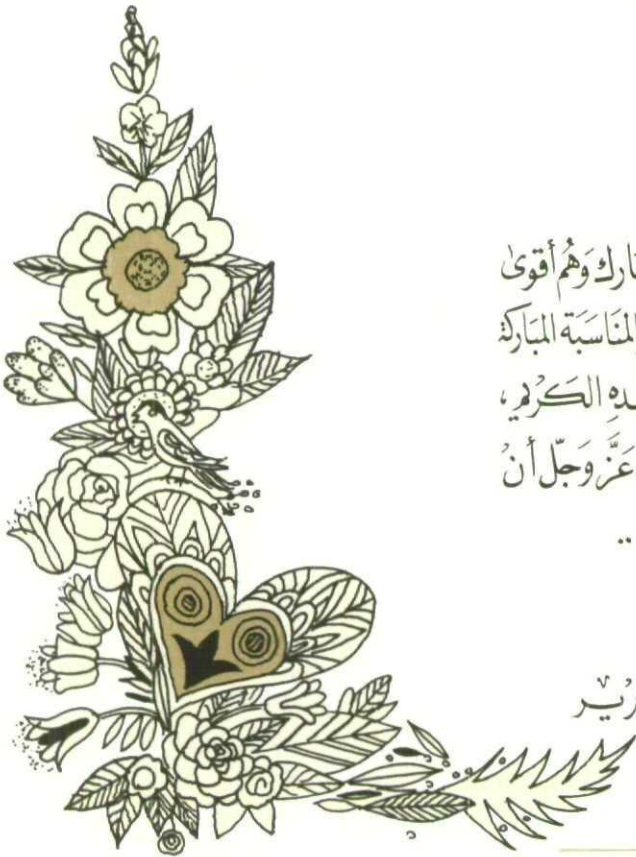 ـارك وَهُم أقوىٰ
المنَاسَبَة المبَاركة
ـدهِ الكَريم،
عَزَّ وَجَلّ أنْ
..
ـرير